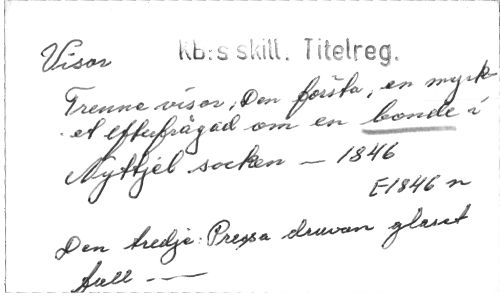 Visor KB:s skill. Titelreg.
Trenne visor, Den första, en myck-
et efterfrågad om en bonde i
Nyttjel socken — 1846
E1846 n
Den tredje: Pressa druvan glaset
full —